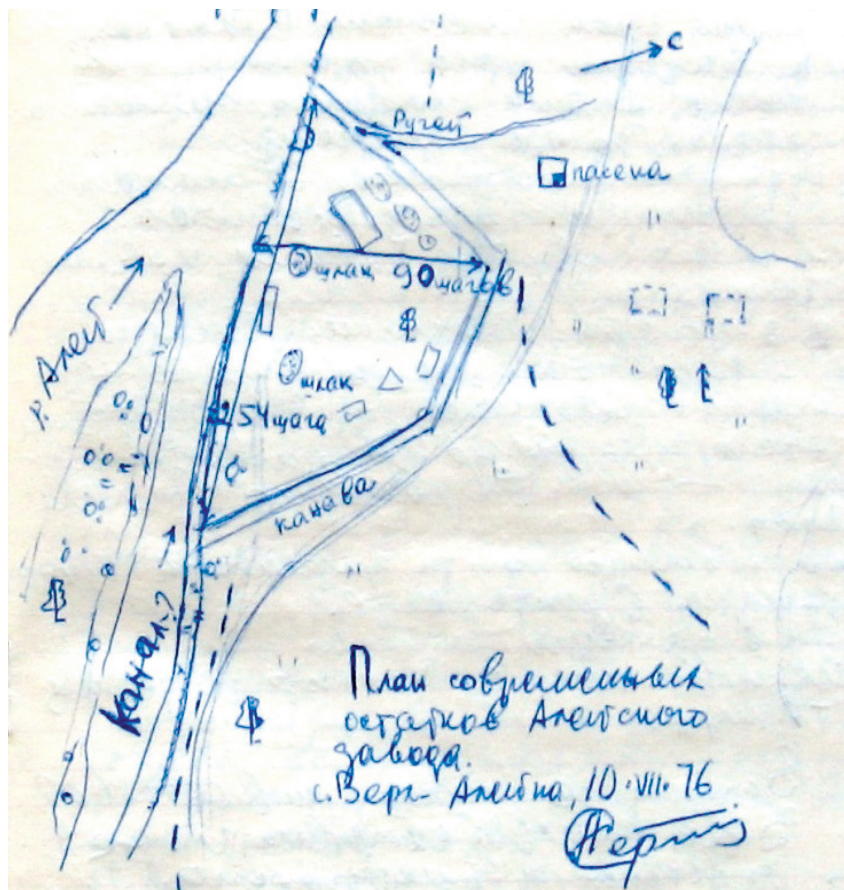 С
Ручей
пасека
шлак 90 шагов
р. Алей
шлак
254 шага
канава
Канал?
План современных
остатков Алейского
завода.
с. Верх-Алейка, 10·VII·76